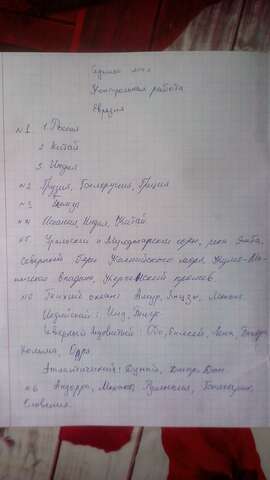 Контрольная работа
Евразия
№1 1 Россия
2 Китай
3 Индия
№2 Грузия, Белоруссия, Греция
№3
№4 Индия, Китай
№5 Уральские и Мугоджарские горы, река Эмба,
Северный берег Каспийского моря, Кумо-Ма-
нычская впадина, Керченский пролив.
Тихий океан: Амур, Янцзы, Меконг.
Индийский: Инд,
Северный Ледовитый: Обь, Енисей, Лена,
Колыма,
Атлантический: Дунай, Днепр, Дон.
№6 Андорра, Монако,
Словения.